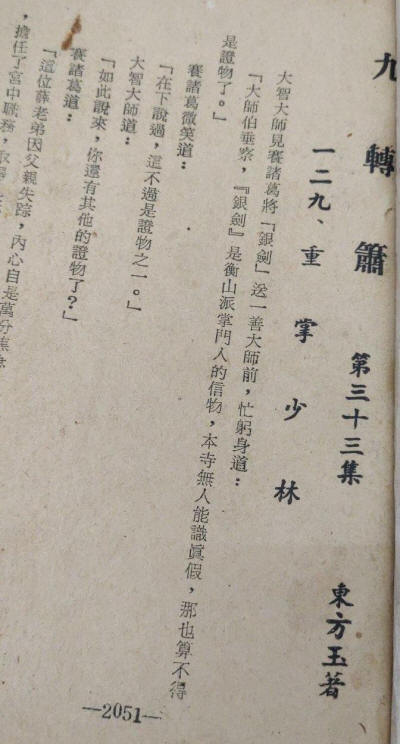 九轉簫
第三十三集
東方玉著
一二九、重掌少林
大智大師見賽諸葛將「銀劍」送一善大師前，忙躬身道：
「大師伯垂察，『銀劍』是衡山派掌門人的信物，本寺無人能識眞假，那也算不得
是證物了。」
賽諸葛微笑道：
「在下說過，這不過是證物之一。」
大智大師道：
「如此說來，你還有其他的證物了？」
賽諸葛道：
「這位薛老弟因父親失踪，內心自是萬分焦
，擔任了宮中職務，
—2051—